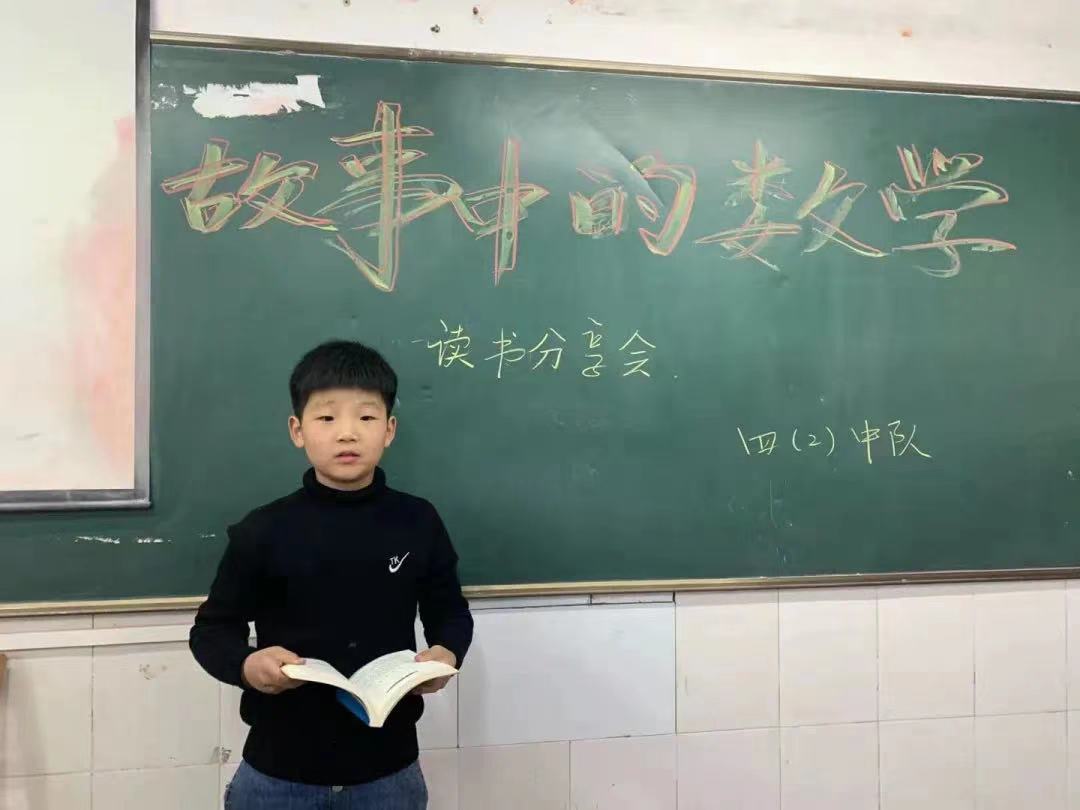 故事中的数学
—读书分享会.
四(2)中队
TK